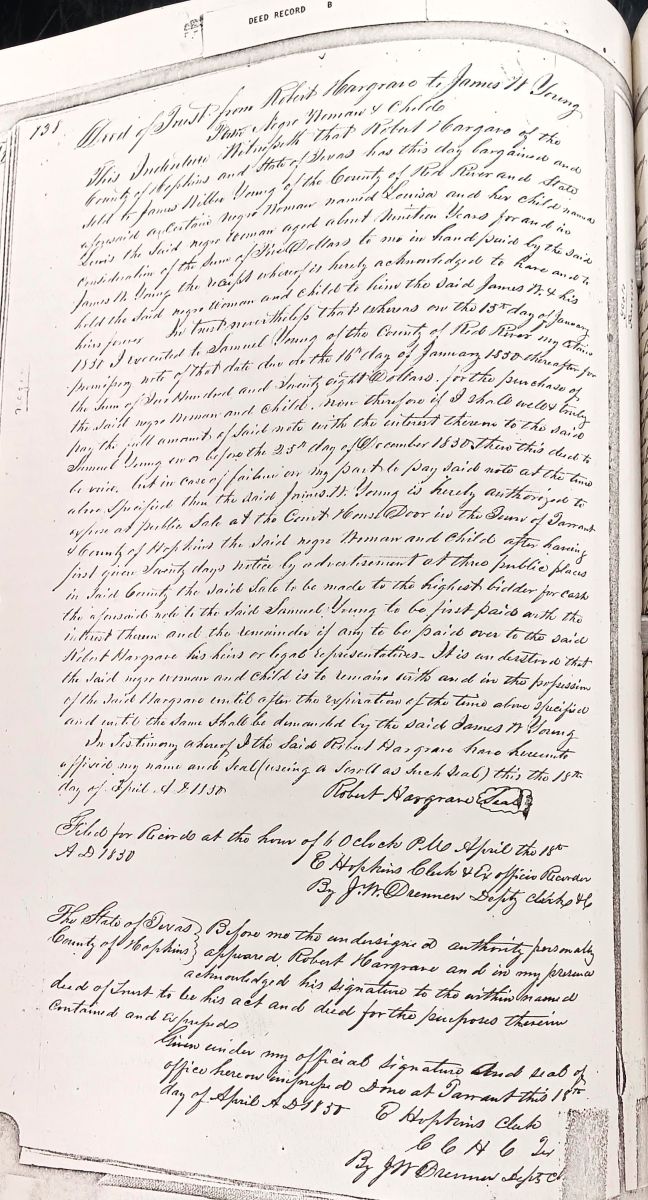 DEED RECORD B
138
Deed of Trust from Robert Hargrave to James W Young
Negro Woman & Childe
This Indenture Witnesseth that Robert Hargave of the
County of Hopkins and State of Texas has this day bargained and
sold to James Willie Young of the County of Red River and State
aforesaid a certain negro Woman named Louisa and her child named
Lewis the Said negro Woman aged about Nineteen Years for and in
consideration of the Sum of Five Dollars to me in hand paid by the said
James W. Young the receipt whereof is hereby acknowledged to have and to
hold the Said negro Woman and Child to him the said James W. & his
heirs forever In trust nevertheless that whereas on the 15th day of January
1850 I executed to Samuel Young of the County of Red River my certain
promissory note of that date due on the 16th day of January 1850 thereafter for
the Sum of Hundred and Twenty eight Dollars, for the purchase of
the said negro Woman and Child, now therefore if I shall well & truly
pay the full amount of Said note with the interest thereon to the said
Samuel Young on or before the 25th day of December 1850 then this deed to
be void, but in case of failure on my part to pay said note at the time
above specified then the Said James W. Young is hereby authorized to
expose at public Sale at the Court House Door in the Town of Tarrant
& County of Hopkins the said negro Woman and Child after having
first given Twenty days notice by advertisement at three public places
in Said County the Said Sale to be made to the highest bidder for cash
the aforesaid note to the Said Samuel Young to be first paid with the
interest thereon and the remainder if any to be paid over to the said
Robert Hargrave his heirs or legal representatives. It is understood that
the said negro woman and child is to remain with and in the possession
of the Said Hargrave until after the expiration of the time above specified
and until the same shall be demanded by the said James W Young
In Testimony whereof I the Said Robert Hargrave have hereunto
affixed my name and Seal (using a Scroll as Such Seal) this the 18th
day of April A.D 1850
Robert Hargrave Seal
Filed for Record at the hour of 6 O clock P.M. April the 18th
A D 1850
E Hopkins Clerk & Ex officio Recorder
By J. W. Drennen Depty clerk &c
The State of Texas } Before me the undersigned authority personally
County of Hopkins } appeared Robert Hargrave and in my presence
acknowledged his signature to the within named
deed of Trust to be his act and deed for the purposes therein
contained and expressed
Given under my official signature and seal of
office hereon impressed Done at Tarrant this 18th
day of April A D 1850
E Hopkins Clerk
C C H C Tx
By J W Drennen Dept C